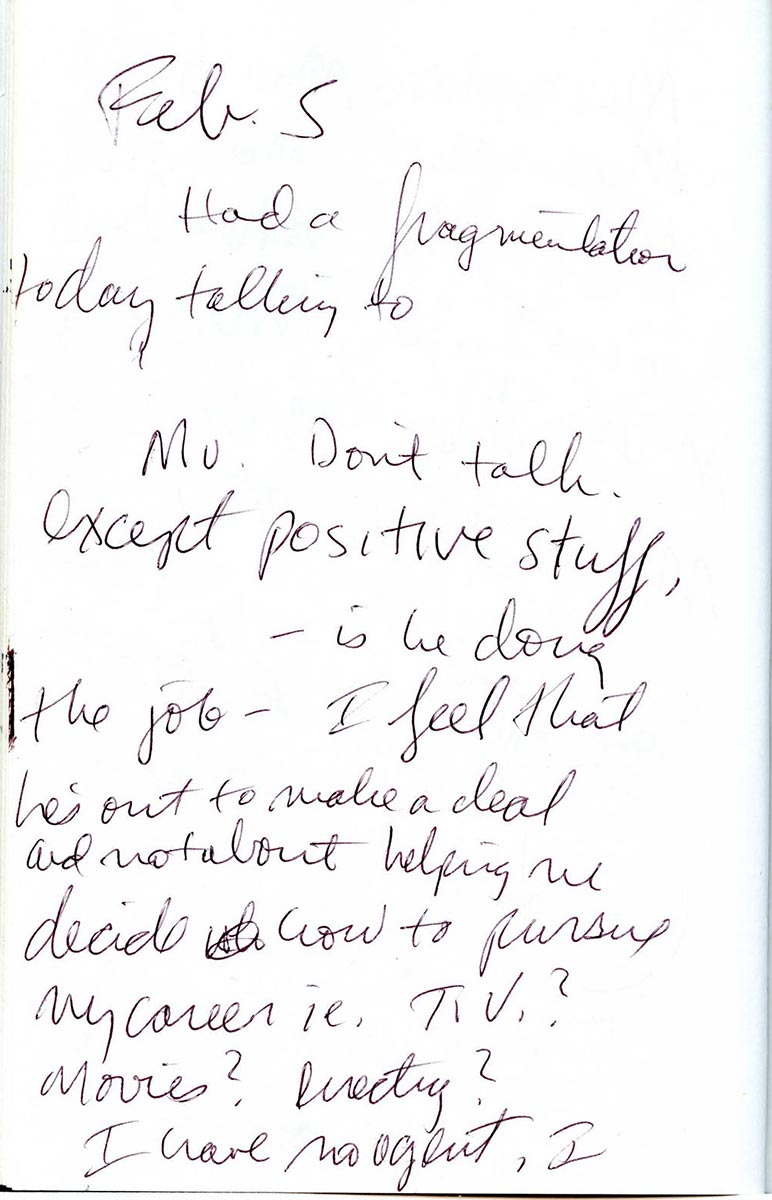 Feb. 5
Had a fragmentation
today talking to
Mu. Don't talk.
except positive stuff,
- is he doing
the job - I feel that
he's out to make a deal
and not about helping me
decide how to pursue
my career ie. T.V.?
Movies? Directing?
I have no agent, I